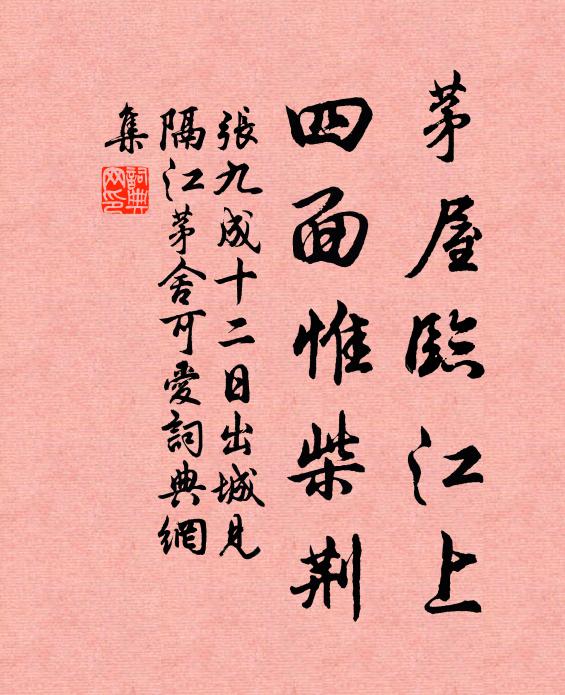 茅屋臨江上
四面惟柴荆
張九成十二日出城見
隔江茅舍可愛詞典網
集
詞典
网印